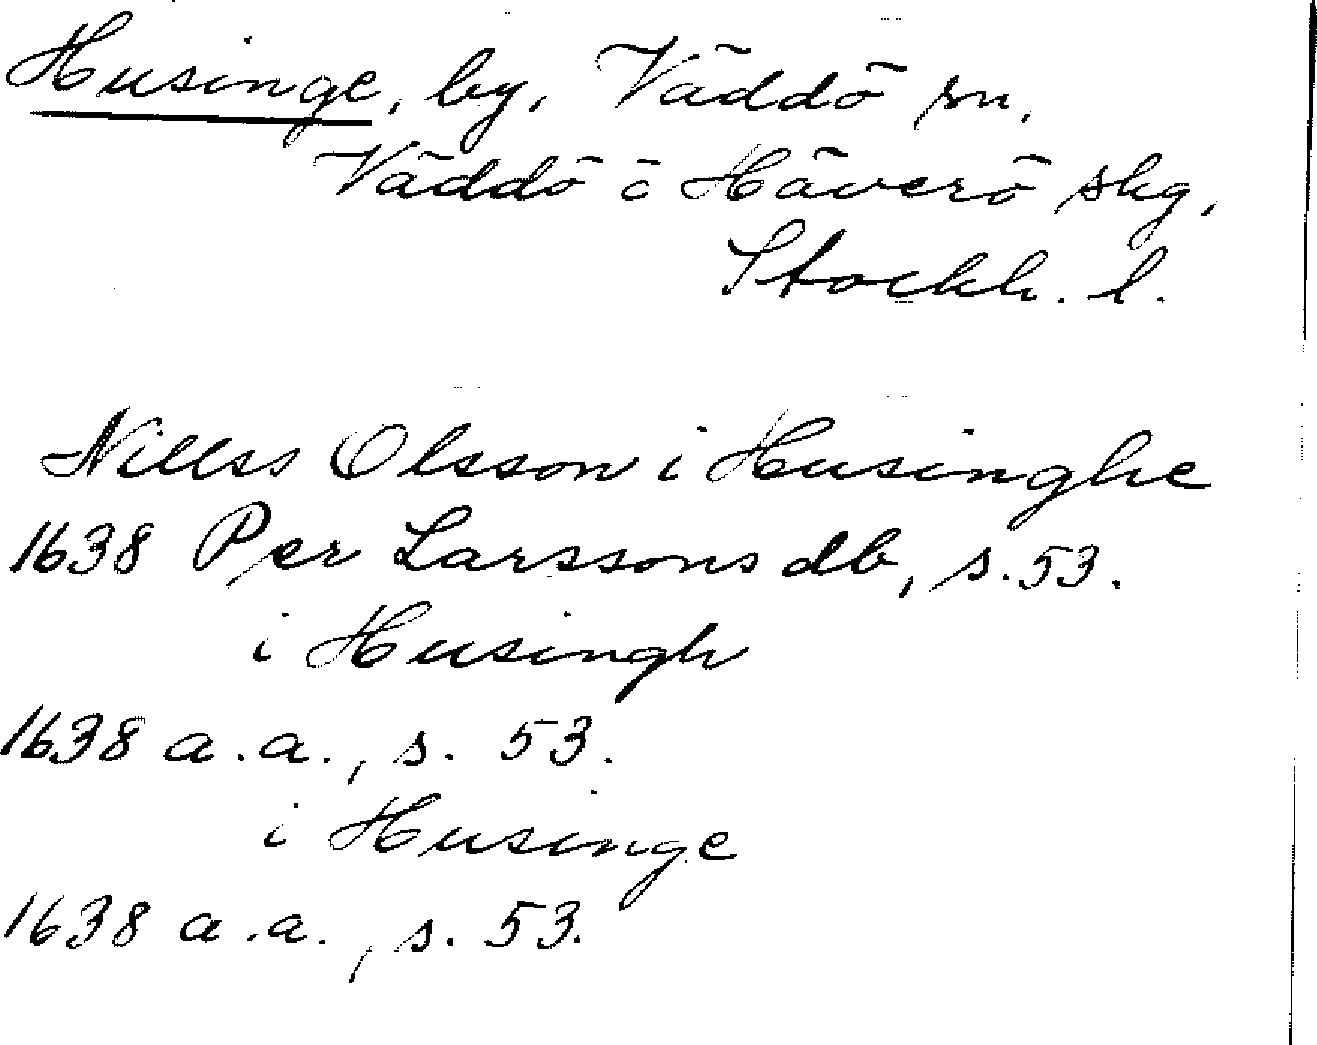 Husinge, by, Väddö sn,
Väddö o Häverö skg,
Stockh. l.
Nillss Olsson i Husinghe
1638 Per Larssons db, s. 53.
i Husingh
1638 a.a., s. 53.
i Husinge
1638 a.a., s. 53.